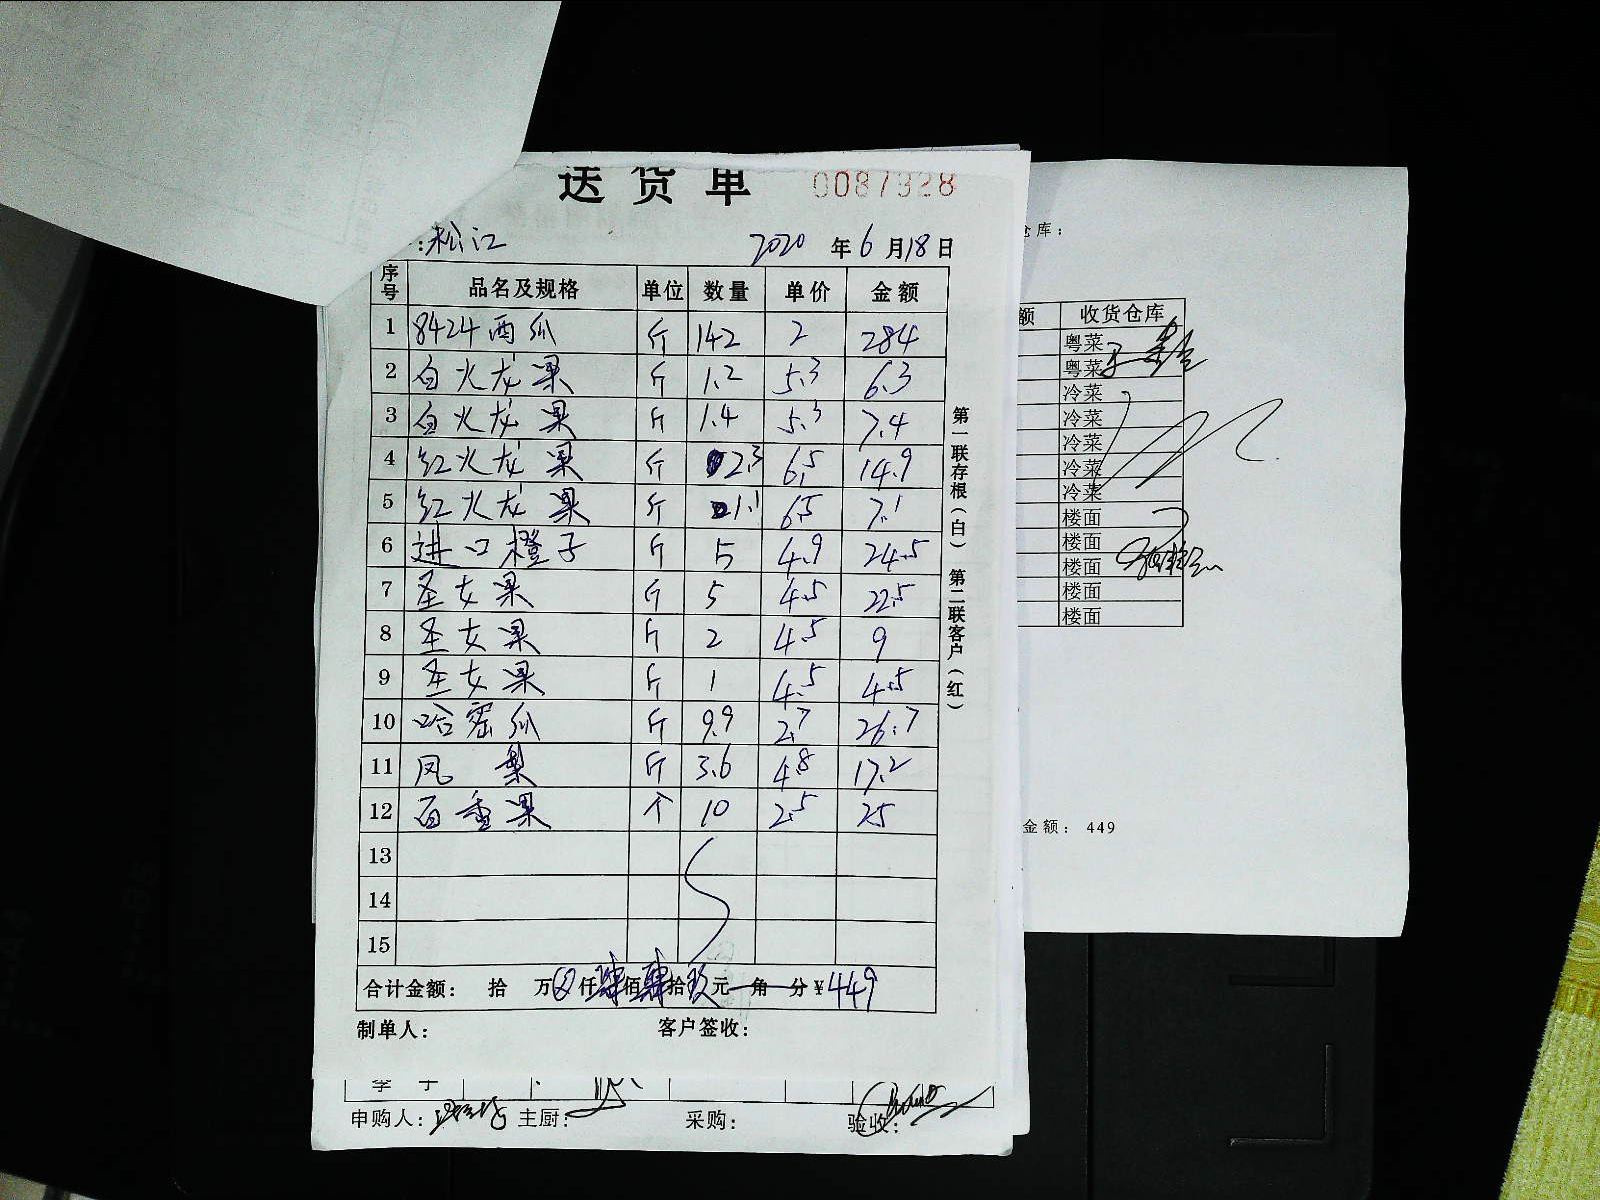 送货单 0087328
:松江 2020 年 6 月 18 日
序号 品名及规格 单位 数量 单价 金额
1 8424西瓜 斤 142 2 284
2 白火龙果 斤 1.2 5.3 6.3
3 白火龙果 斤 1.4 5.3 7.4
4 红火龙果 斤 2.3 6.5 14.9
5 红火龙果 斤 1.1 6.5 7.1
6 进口橙子 斤 5 4.9 24.5
7 圣女果 斤 5 4.5 22.5
8 圣女果 斤 2 4.5 9
9 圣女果 斤 1 4.5 4.5
10 哈密瓜 斤 9.9 2.7 26.7
11 凤梨 斤 3.6 4.8 17.2
12 百香果 个 10 2.5 25
13
14
15
合计金额: 拾 万 仟肆佰肆拾玖元 角 分¥449
制单人: 客户签收:
第一联存根(白) 第二联客户(红)
李子
申购人: 主厨: 采购: 验收:
仓库:
额 收货仓库
粤菜
粤菜
冷菜
冷菜
冷菜
冷菜
冷菜
楼面
楼面
楼面
楼面
楼面
金额: 449